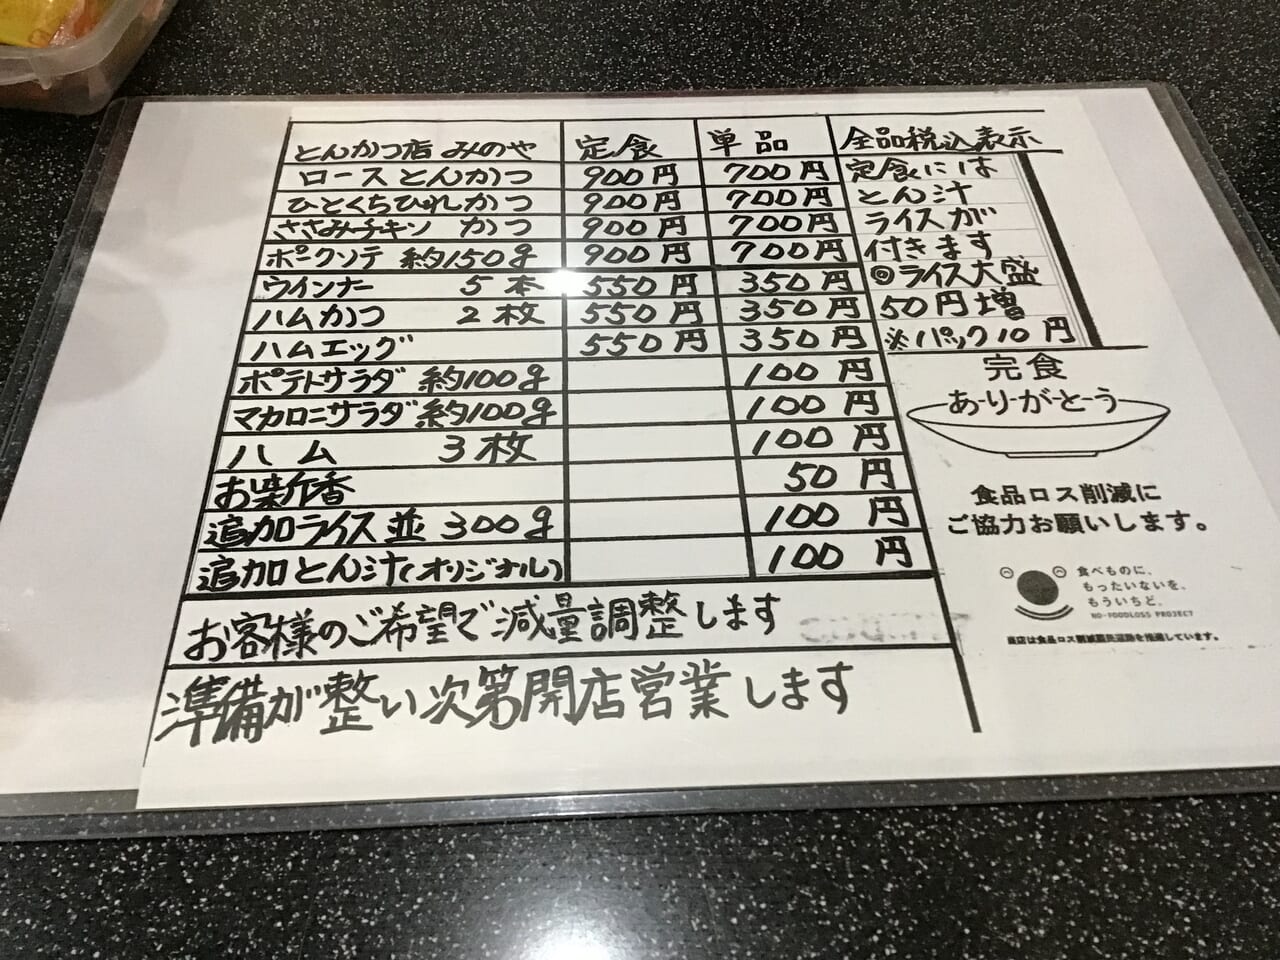 とんかつ店 みのや 定食 単品 全品税込表示
ロースとんかつ 900円 700円
ひとくちひれかつ 900円 700円
ささみチキン かつ 900円 700円
ポークソテ 約150g 900円 700円
ウインナー 5本 550円 350円
ハムかつ 2枚 550円 350円
ハムエッグ 550円 350円
ポテトサラダ 約100g 100円
マカロニサラダ 約100g 100円
ハム 3枚 100円
お新香 50円
追加ライス並 300g 100円
追加とん汁(オリジナル) 100円
お客様のご希望で減量調整します
準備が整い次第開店営業します
定食には
とん汁
ライスが
付きます
◎ライス大盛
50円増
※パック10円
完食
ありがとう
食品ロス削減に
ご協力お願いします。
食べものに、
もったいないを、
もういちど。
NO-FOODLOSS PROJECT